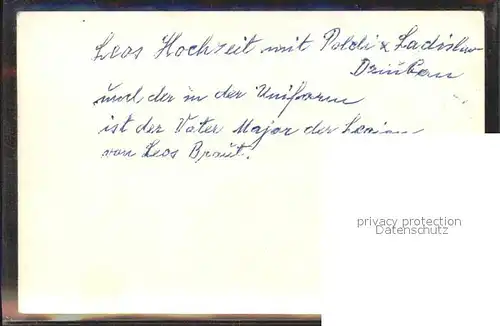 Leos Hochzeit mit Poldi & Ladislav
und der in der Uniform
ist der Vater Major der
von Leos Braut.
privacy protection
Datenschutz